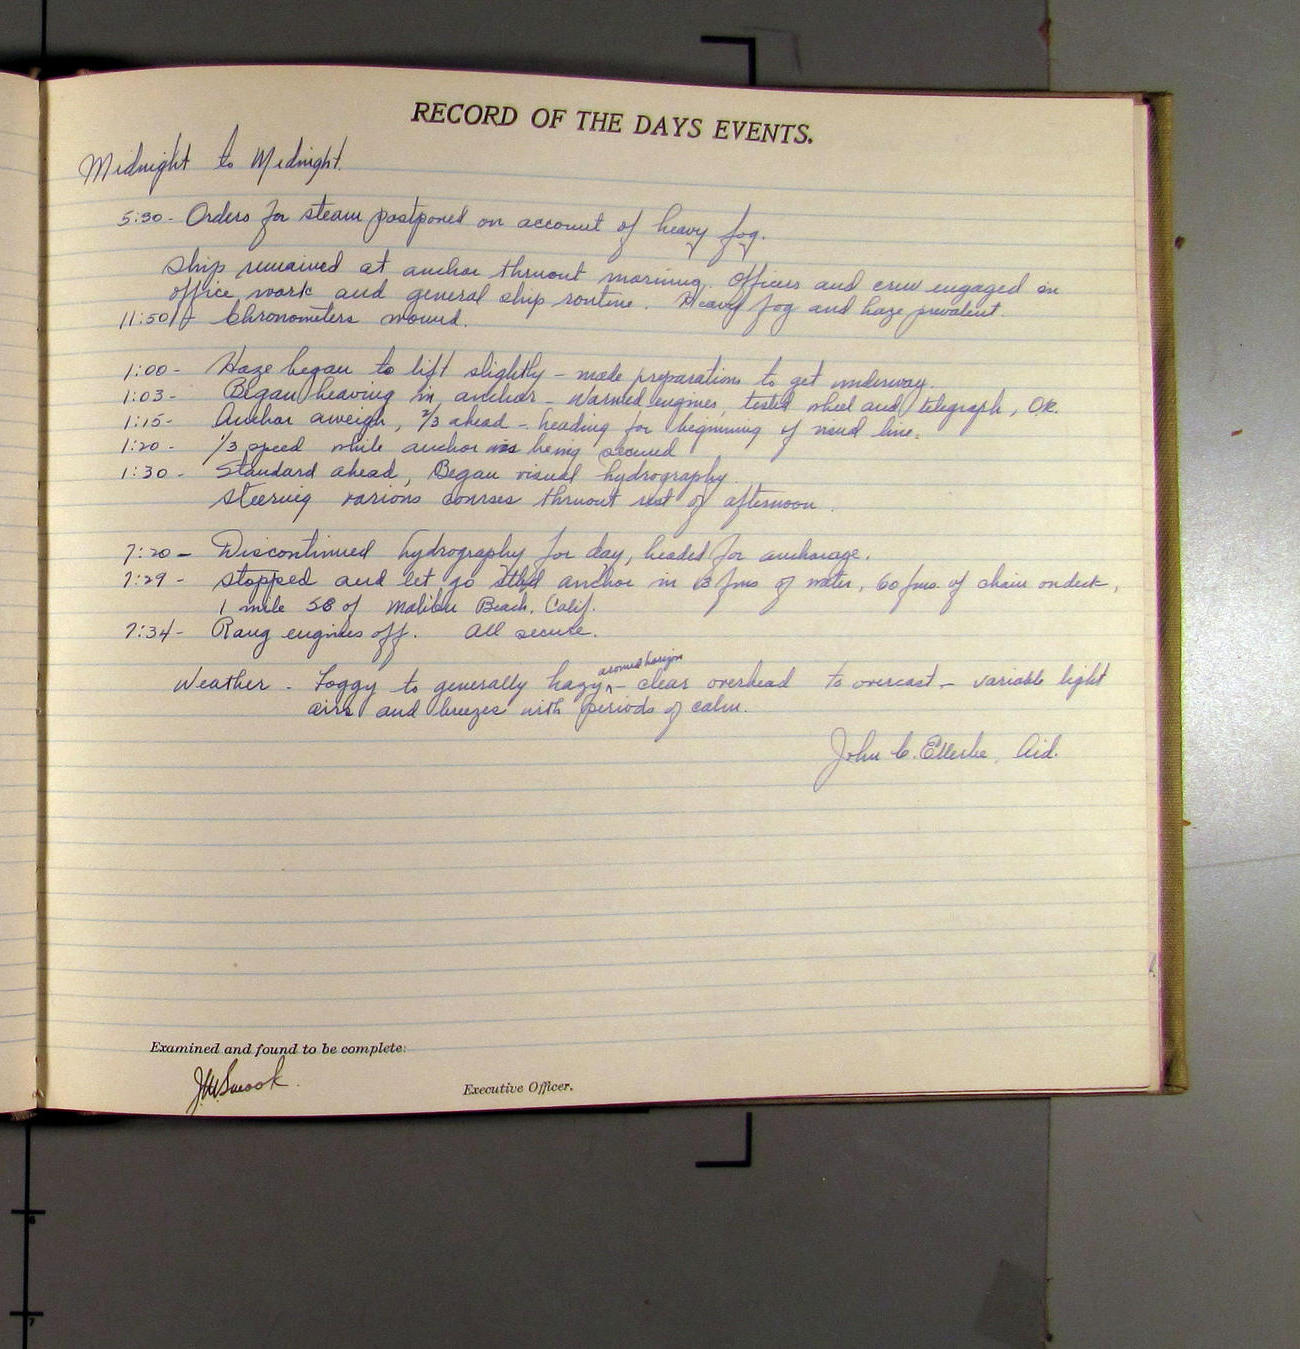 RECORD OF THE DAYS EVENTS.
Midnight to Midnight.
5:30 - Orders for steam postponed on account of heavy fog.
Ship remained at anchor thruout morning. Officers and crew engaged on
office work and general ship routine. Heavy fog and haze prevalent.
11:50 - Chronometers wound.
1:00 - Haze began to lift slightly - made preparations to get underway.
1:03 - Began heaving in anchor - Warmed engines, tested wheel and telegraph, OK.
1:15 - Anchor aweigh, 2/3 ahead - heading for beginning of visual line.
1:20 - 1/3 speed while anchor was being secured
1:30 - Standard ahead, Began visual hydrography.
steering various courses thruout rest of afternoon.
7:20 - Discontinued hydrography for day, headed for anchorage.
7:29 - stopped and let go stbd anchor in 13 fms of water, 60 fms. of chain on deck,
1 mile SE of Malibu Beach, Calif.
7:34 - Rang engines off. All secure.
around horizon
Weather - Foggy to generally hazy - clear overhead to overcast - variable light
airs and breezes with periods of calm.
John C. Ellerbe, Aid.
Examined and found to be complete:
J.H.
Executive Officer.
6
7